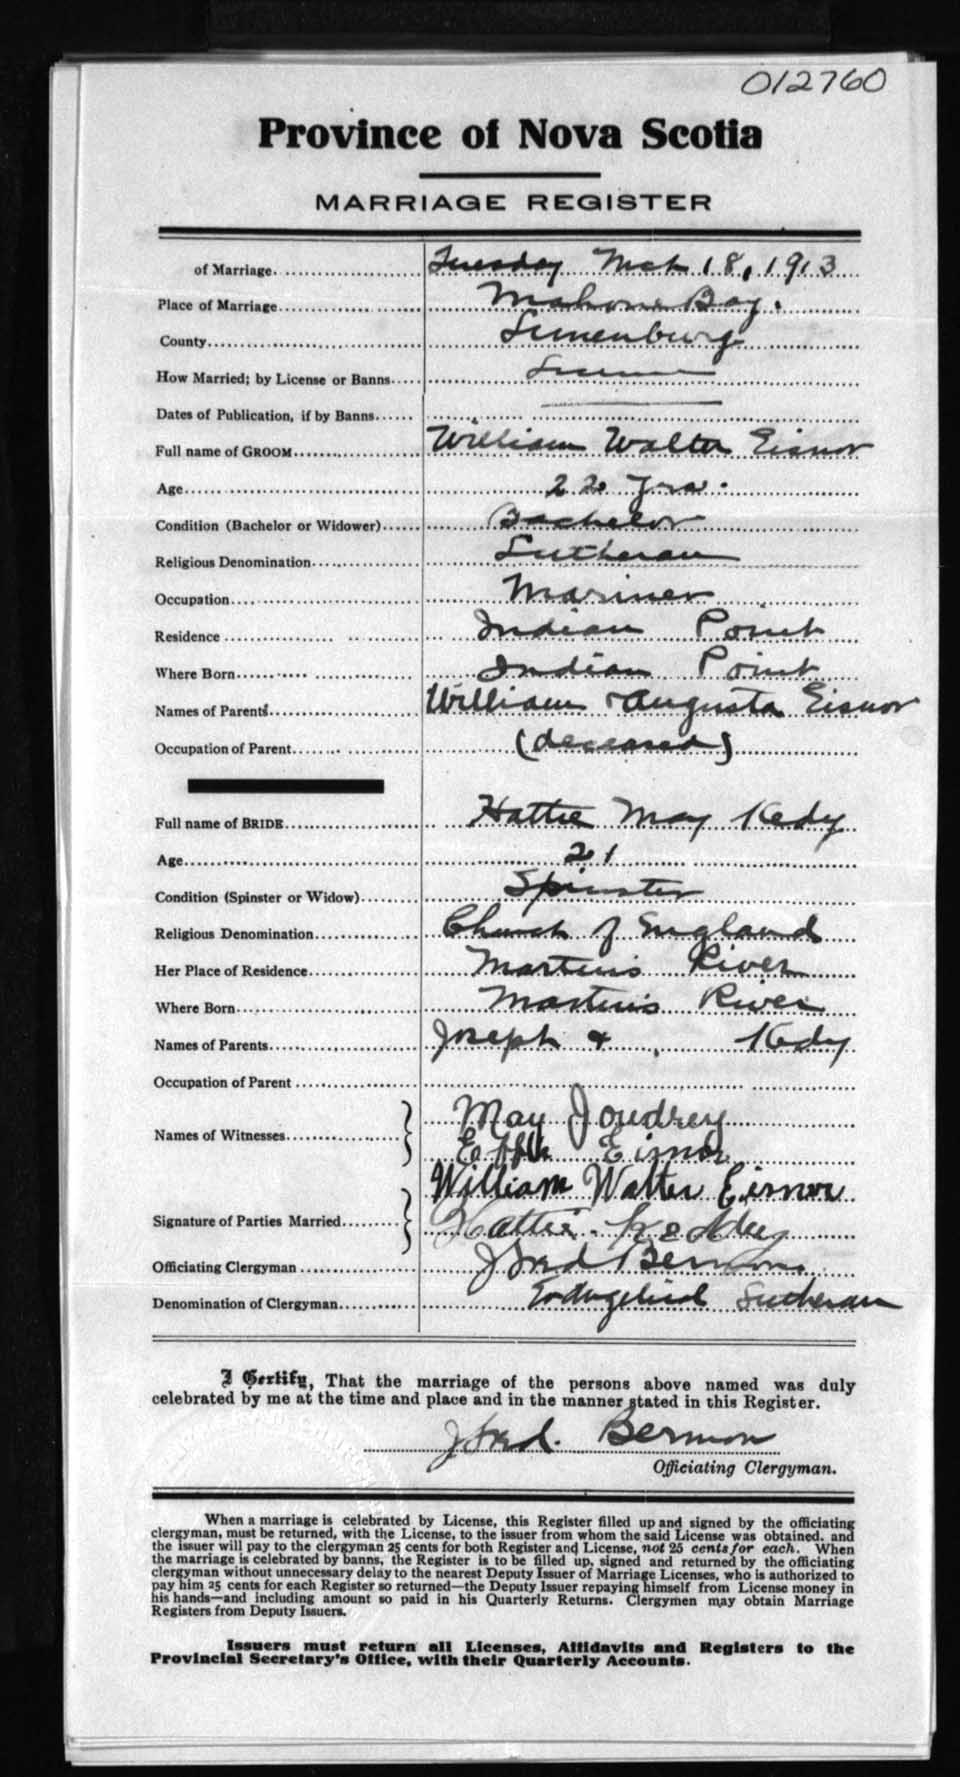 012760
Province of Nova Scotia
MARRIAGE REGISTER
of Marriage Tuesday Mch 18, 1913
Place of Marriage Mahone Bay.
County Lunenburg
How Married; by License or Banns License
Dates of Publication, if by Banns
Full name of GROOM William Walter Eisnor
Age 22 yrs.
Condition (Bachelor or Widower) Bachelor
Religious Denomination Lutheran
Occupation Mariner
Residence Indian Point
Where Born Indian Point
Names of Parents William & Augusta Eisnor
Occupation of Parent (deceased)
Full name of BRIDE Hattie May Kedy
Age 21
Condition (Spinster or Widow) Spinster
Religious Denomination Church of England
Her Place of Residence Martins River
Where Born Martins River
Names of Parents Joseph & Kedy
Occupation of Parent
May Joudrey
Names of Witnesses
Effie Eisnor
William Walter Eisnor
Signature of Parties Married
Hattie
Officiating Clergyman J Fred Bermon
Denomination of Clergyman Evangelical Lutheran
I Certify, That the marriage of the persons above named was duly
celebrated by me at the time and place and in the manner stated in this Register.
J Fred. Bermon
Officiating Clergyman.
When a marriage is celebrated by License, this Register filled up and signed by the officiating
clergyman, must be returned, with the License, to the issuer from whom the said License was obtained, and
the issuer will pay to the clergyman 25 cents for both Register and License, not 25 cents for each. When
the marriage is celebrated by banns, the Register is to be filled up, signed and returned by the officiating
clergyman without unnecessary delay to the nearest Deputy Issuer of Marriage Licenses, who is authorized to
pay him 25 cents for each Register so returned—the Deputy Issuer repaying himself from License money in
his hands—and including amount so paid in his Quarterly Returns. Clergymen may obtain Marriage
Registers from Deputy Issuers.
Issuers must return all Licenses, Affidavits and Registers to the
Provincial Secretary's Office, with their Quarterly Accounts.